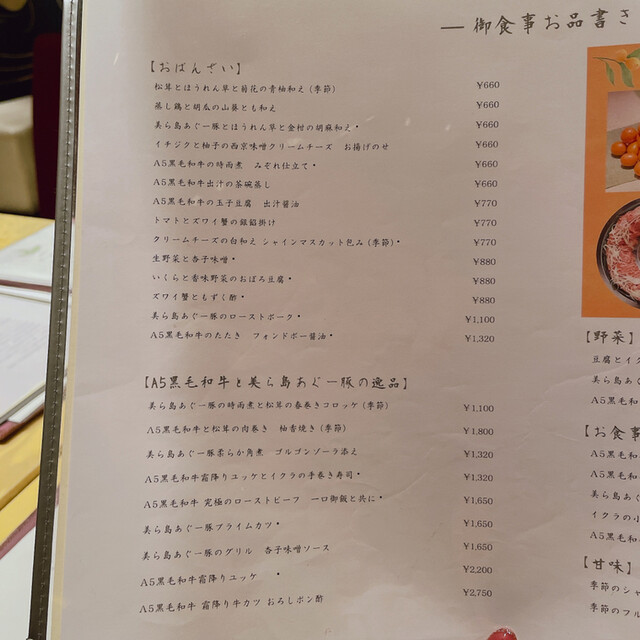 ― 御食事お品書き
【おばんざい】
松茸とほうれん草と菊花の青柚和え(季節) ¥660
蒸し鶏と胡瓜の山葵とも和え ¥660
美ら島あぐー豚とほうれん草と金柑の胡麻和え• ¥660
イチジクと柚子の西京味噌クリームチーズ お揚げのせ ¥660
A5黒毛和牛の時雨煮 みぞれ仕立て• ¥660
A5黒毛和牛出汁の茶碗蒸し ¥660
A5黒毛和牛の玉子豆腐 出汁醤油 ¥770
トマトとズワイ蟹の銀餡掛け ¥770
クリームチーズの白和え シャインマスカット包み(季節)• ¥770
生野菜と杏子味噌• ¥880
いくらと香味野菜のおぼろ豆腐• ¥880
ズワイ蟹ともずく酢• ¥880
美ら島あぐー豚のローストポーク• ¥1,100
A5黒毛和牛のたたき フォンドボー醤油• ¥1,320
【A5黒毛和牛と美ら島あぐー豚の逸品】
美ら島あぐー豚の時雨煮と松茸の春巻きコロッケ(季節) ¥1,100
A5黒毛和牛と松茸の肉巻き 柚香焼き(季節) ¥1,800
美ら島あぐー豚柔らか角煮 ゴルゴンゾーラ添え ¥1,320
A5黒毛和牛霜降りユッケとイクラの手巻き寿司• ¥1,320
A5黒毛和牛 究極のローストビーフ 一口御飯と共に• ¥1,650
美ら島あぐー豚プライムカツ• ¥1,650
美ら島あぐー豚のグリル 杏子味噌ソース ¥1,650
A5黒毛和牛霜降りユッケ • ¥2,200
A5黒毛和牛 霜降り牛カツ おろしポン酢 ¥2,750
【野菜】
豆腐とイク
美ら島あぐ
A5黒毛
【お食事
A5黒毛和
A5黒毛和
美ら島あぐ
イクラの小
A5黒毛和
【甘味】
季節のシャ
季節のフル